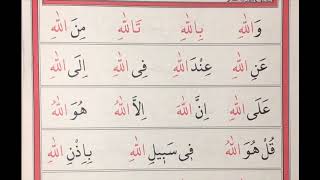 وَاللّٰهِ بِاللّٰهِ تَاللّٰهِ مِنَ اللّٰهِ
عَنِ اللّٰهِ عِنْدَ اللّٰهِ فِى اللّٰهِ اِلَى اللّٰهِ
عَلَى اللّٰهِ اِنَّ اللّٰهَ اِلاَّ اللّٰهُ هُوَ اللّٰهُ
قُلْ هُوَ اللّٰهُ فِى سَبِيلِ اللّٰهِ بِاِذْنِ اللّٰهِ